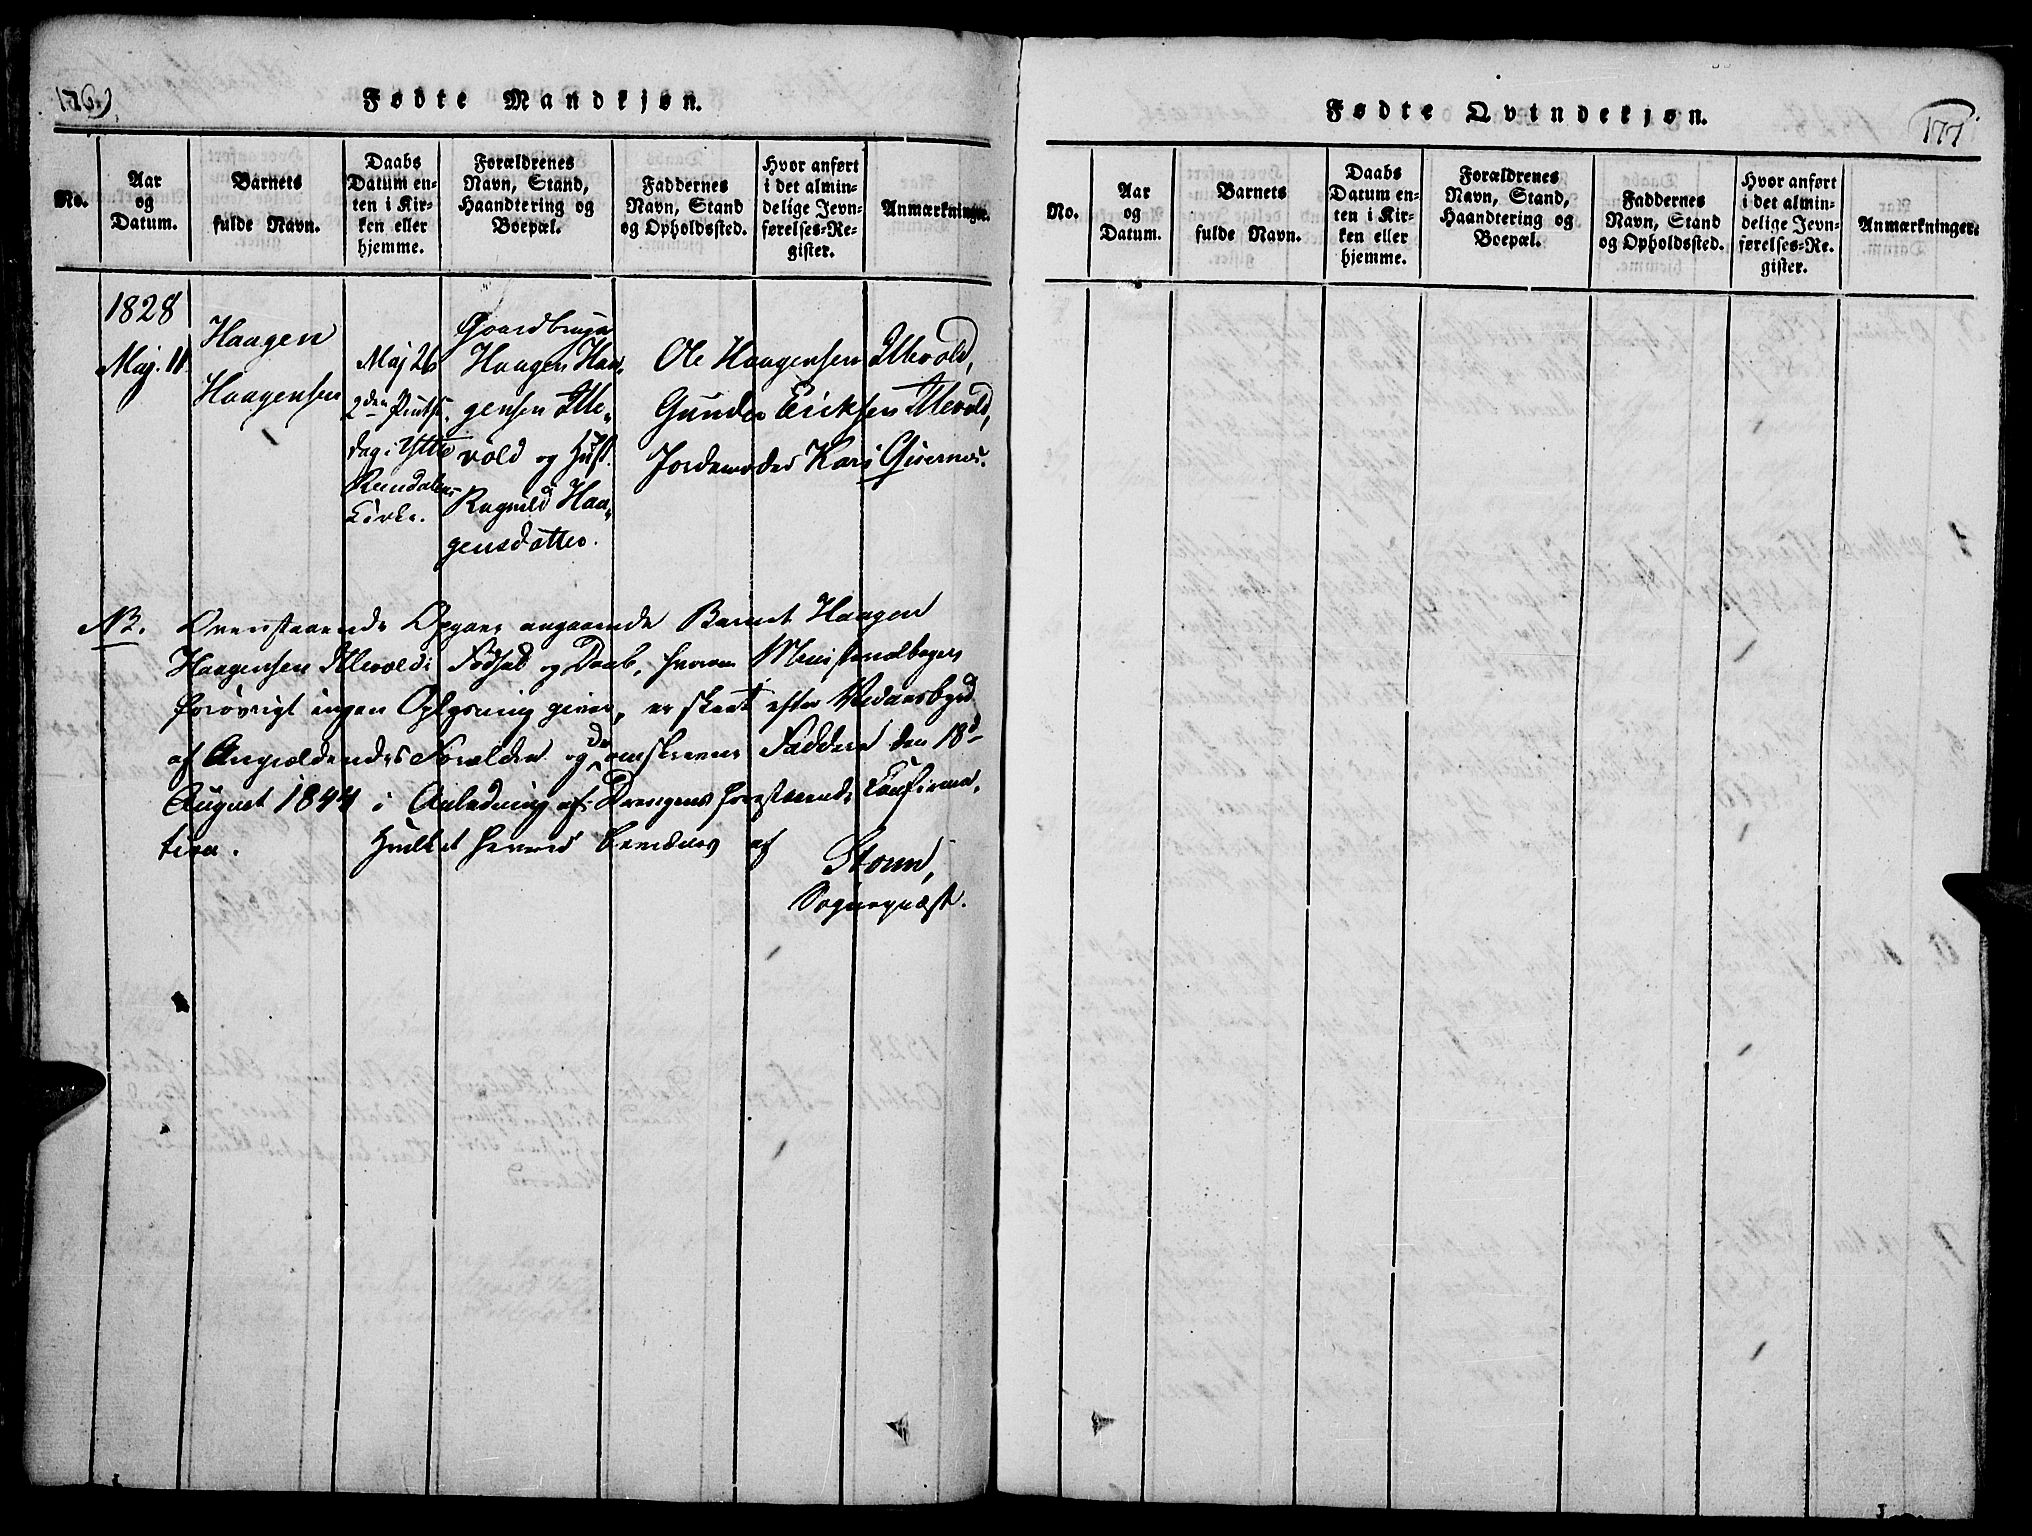 176.
Fødte Mandkjøn.
No.
Aar
og
Datum.
Barnets
fulde Navn.
Daabs
Datum en-
ten i Kir-
ken eller
hjemme.
Forældrenes
Navn, Stand,
Haandtering og
Boepæl.
Faddernes
Navn, Stand
og Opholdssted.
Hvor anført
i det almin-
delige Jevn-
førelses-Re-
gister.
Anmærkninger.
1828
Maj. 11.
Haagen
Haagensen
Maj 26
2den Pintse-
dag i Yttre
Rendalens
Kirke.
Gaardbruger
Haagen Haa-
gensen Itte-
vold og Hust.
Ragnild Haa-
gensdatter.
Ole Haagensen Ittevold,
Gunder Ericksen Ittevold,
Jordemoder Kari
NB. Ovenstaaende Opgave angaaende Barnet Haagen
Haagensen Ittevolds Fødsel og Daab, hvorom Ministerialbogen
forøvrigt ingen Oplysning giver, er skeet efter Vidnesbyrd
af Angjældendes Forældre og de omskrevne Faddere den 18d
August 1844 i Anledning af Drengens forestaaende Confirma-
tion. Hvilket herved bevidnes af
Sogneprest.
Fødte Qvindekjøn.
177
No.
Aar
og
Datum.
Barnets
fulde Navn.
Daabs
Datum en-
ten i Kir-
ken eller
hjemme.
Forældrenes
Navn, Stand,
Haandtering og
Boepæl.
Faddernes
Navn, Stand
og Opholdssted.
Hvor anført
i det almin-
delige Jevn-
førelses-Re-
gister.
Anmærkninger.